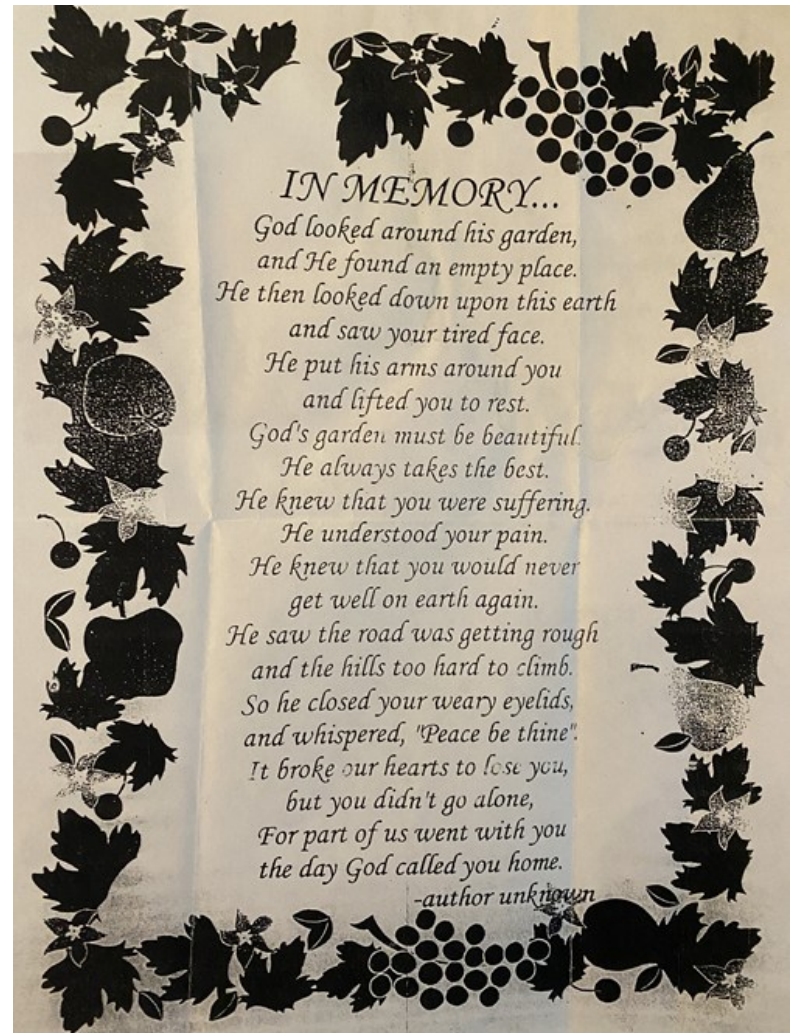 IN MEMORY...
God looked around his garden,
and He found an empty place.
He then looked down upon this earth
and saw your tired face.
He put his arms around you
and lifted you to rest.
God's garden must be beautiful.
He always takes the best.
He knew that you were suffering.
He understood your pain.
He knew that you would never
get well on earth again.
He saw the road was getting rough
and the hills too hard to climb.
So he closed your weary eyelids,
and whispered, "Peace be thine".
It broke our hearts to lose you,
but you didn't go alone,
For part of us went with you
the day God called you home.
-author unknown